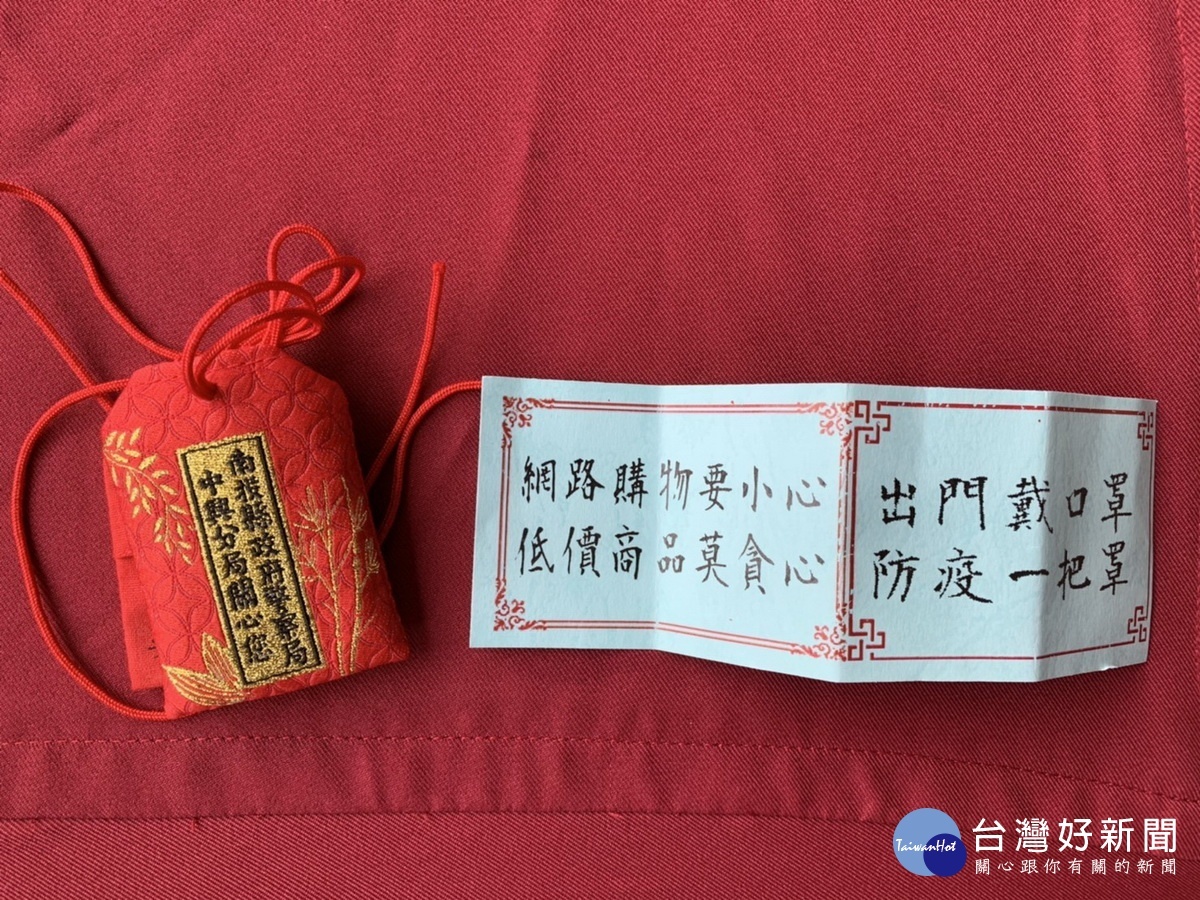 南投縣政府警察局
中興分局關心您
網路購物要小心
低價商品莫貪心
出門戴口罩
防疫一把罩
TaiwanHot
台灣好新聞
關心跟你有關的新聞